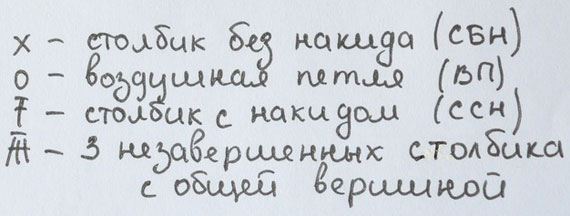 х – столбик без накида (СБН)
о – воздушная петля (ВП)
Ŧ – столбик с накидом (ССН)
– 3 незавершенных столбика
с общей вершиной